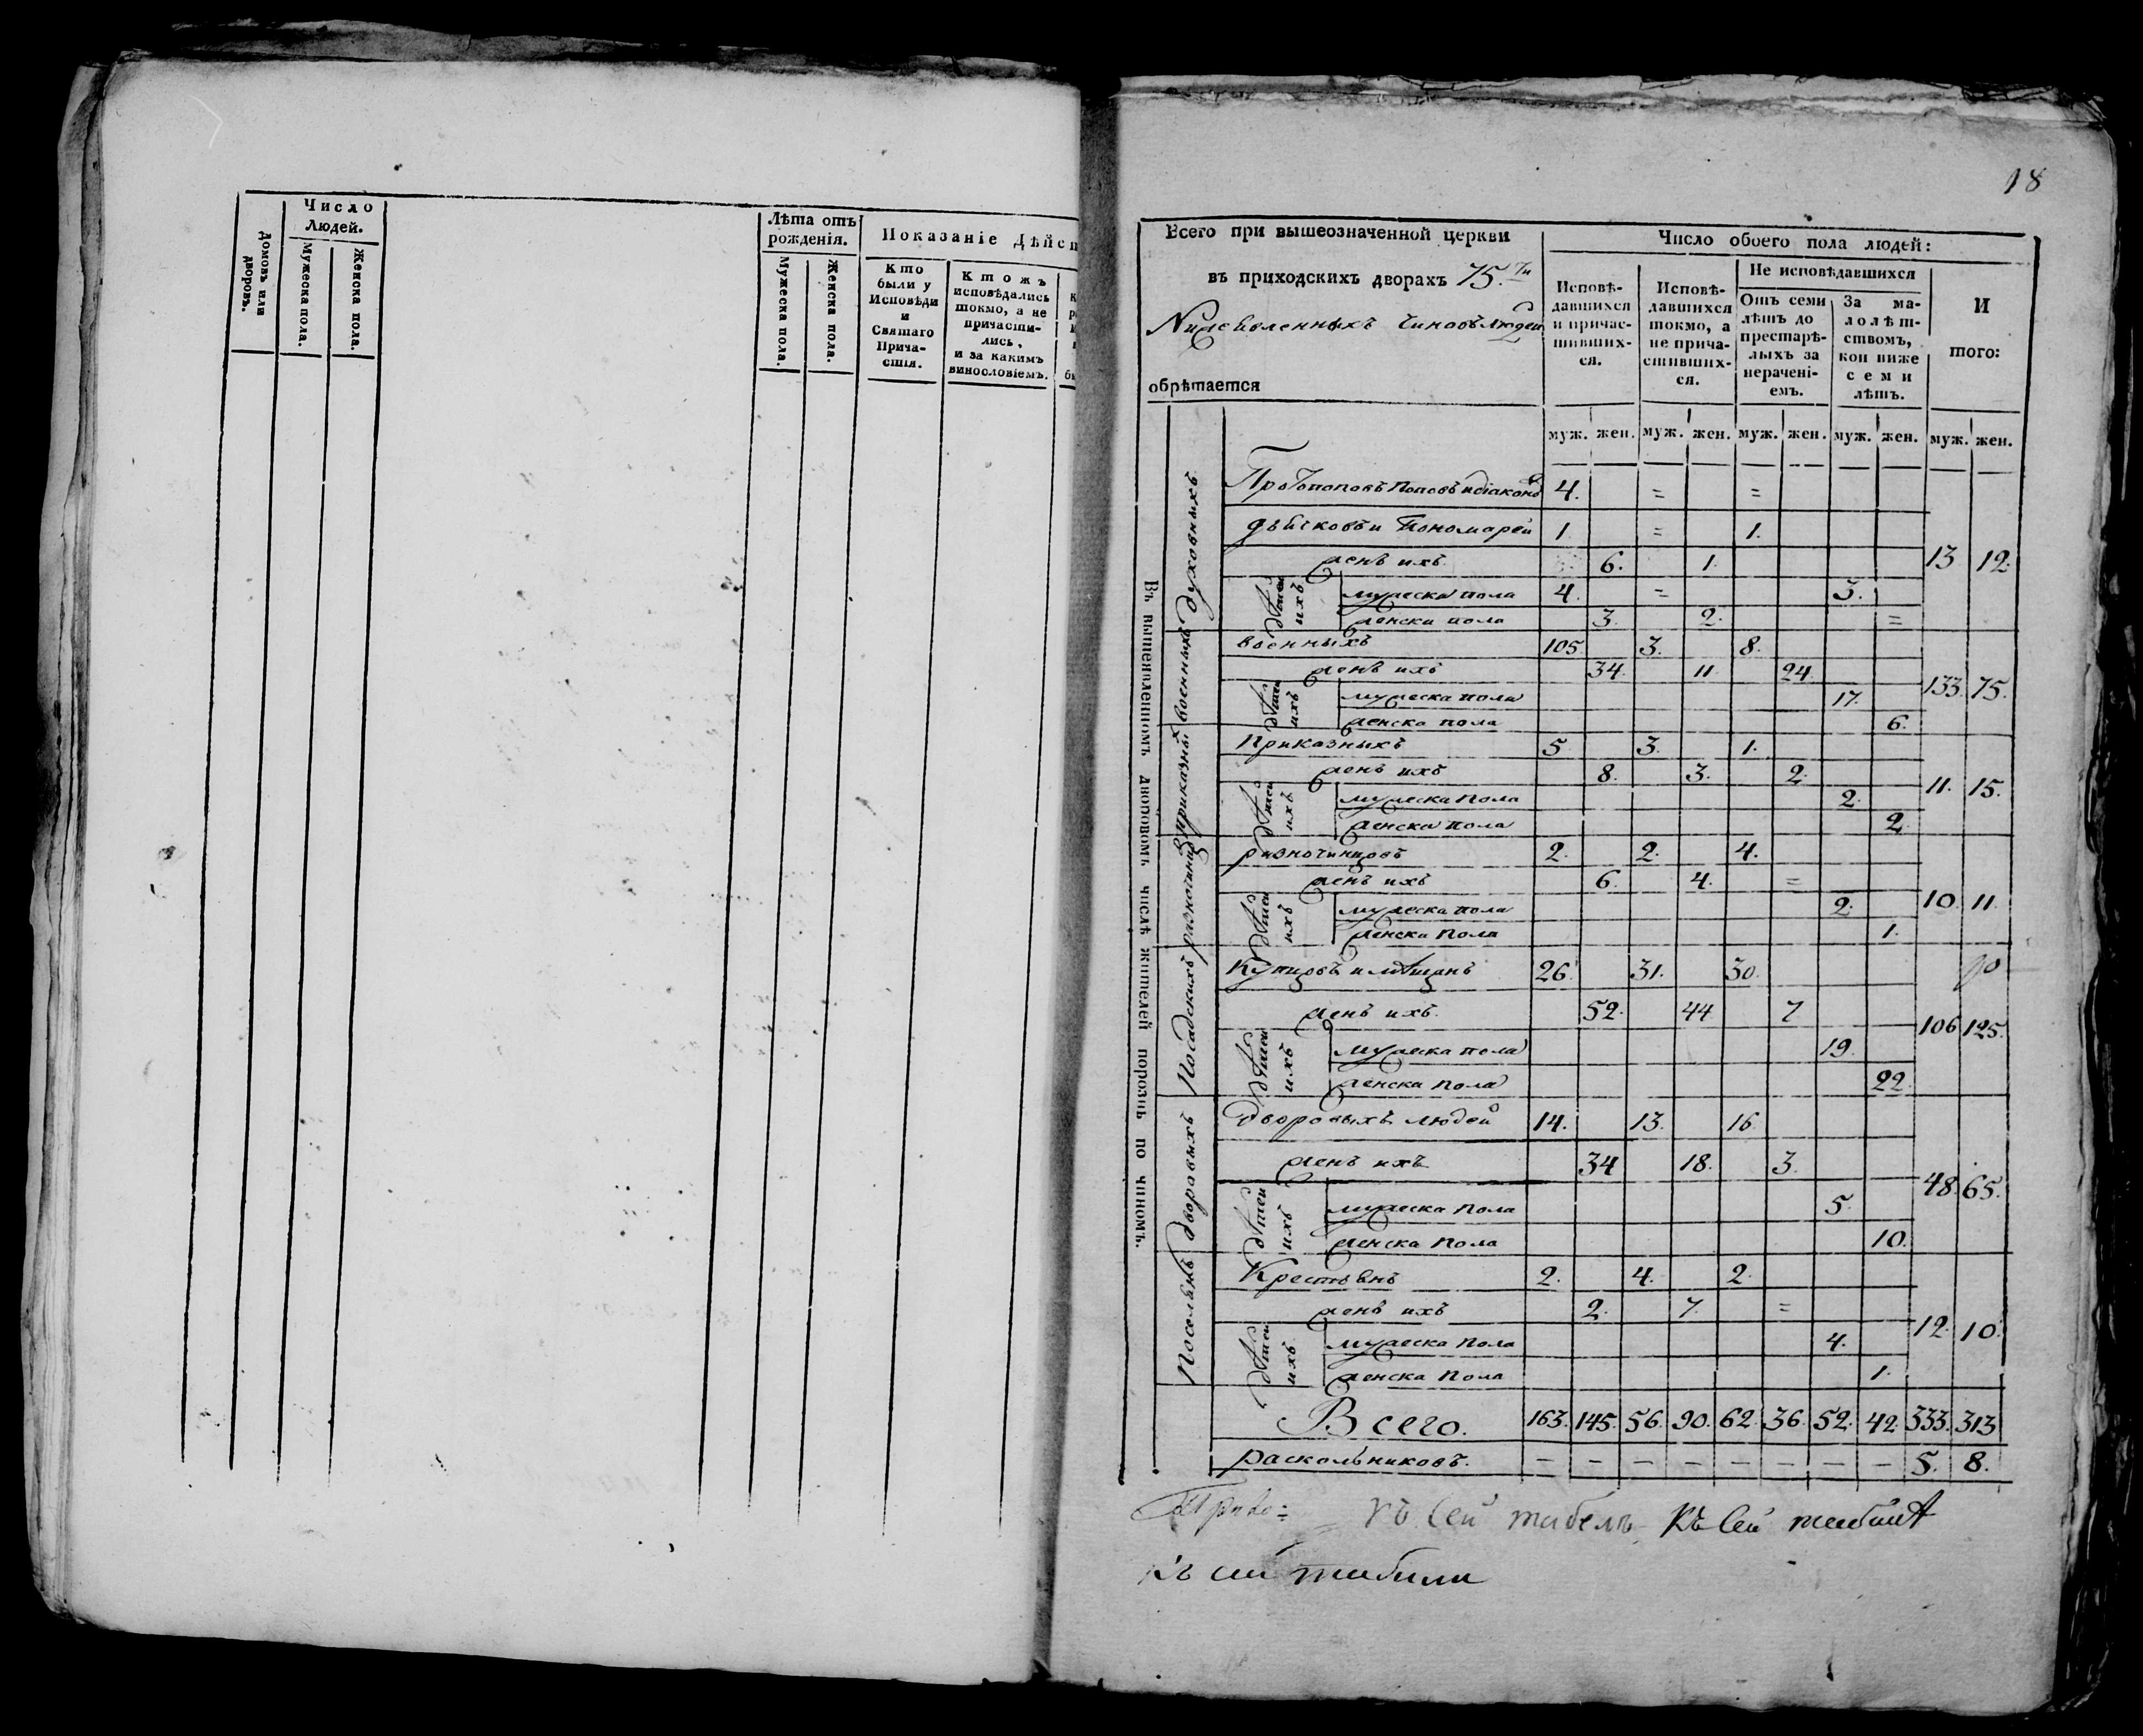 Число
Людей.
Домовъ или дворовъ.
Мужеска пола.
Женска пола.
Лѣта отъ
рожденія.
Мужеска пола.
Женска пола.
Показаніе Дѣйс
Кто
были у
Исповѣди
и
Святаго
Прича-
стія.
Ктожъ
исповѣдались
токмо, а не
причасти-
лись,
и за какимъ
винословіемъ.
18
Всего при вышеозначенной церкви
въ приходскихъ дворахъ 75.ти
Нижеявленныхъ чиновъ людей
обрѣтается
Число обоего пола людей:
Исповѣ-
давшихся
и причас-
тивших-
ся.
Исповѣ-
давшихся
токмо, а
не прича-
стивших-
ся.
Не исповѣдавшихся
Отъ семи
лѣтъ до
престарѣ-
лыхъ за
нерачені-
емъ.
За ма-
лолѣт-
ствомъ,
кои ниже
семи
лѣтъ.
И
того:
муж. жен. муж. жен. муж. жен. муж. жен. муж. жен.
Въ вышеявленномъ дворовомъ числѣ жителей порознь по чиномъ.
духовныхъ
Протопоповъ Поповъ и діаконовъ 4. = =
дьячковъ и Пономарей 1. = 1.
женъ ихъ 6. 1. 13 12.
дѣтей ихъ
мужеска пола 4. = 3.
женска пола 3. 2. =
военныхъ
военныхъ 105. 3. 8.
женъ ихъ 34. 11 24 133. 75.
дѣтей ихъ
мужеска пола 17.
женска пола 6.
приказныхъ
Приказныхъ 5 3. 1.
женъ ихъ 8. 3. 2. 11. 15.
дѣтей ихъ
мужеска пола 2.
женска пола 2.
разночинцовъ
разночинцовъ 2. 2. 4.
женъ ихъ 6. 4. = 10. 11.
дѣтей ихъ
мужеска пола 2.
женска пола 1.
Посадскихъ
Купцовъ и мѣщанъ 26. 31. 30.
женъ ихъ. 52. 44 7 106 125.
дѣтей ихъ
мужеска пола 19.
женска пола 22.
дворовыхъ
дворовыхъ людей 14. 13. 16
женъ ихъ 34 18. 3. 48. 65.
дѣтей ихъ
мужеска пола 5.
женска пола 10.
Поселянъ
Крестьянъ 2. 4. 2.
женъ ихъ 2. 7. = 12. 10.
дѣтей ихъ
мужеска пола 4.
женска пола 1.
Всего. 163. 145. 56. 90. 62. 36. 52. 42. 333. 313
раскольниковъ. – – – – – – – – 5. 8.
Къ сей табелѣ Къ сей табелѣ
Къ сей табели